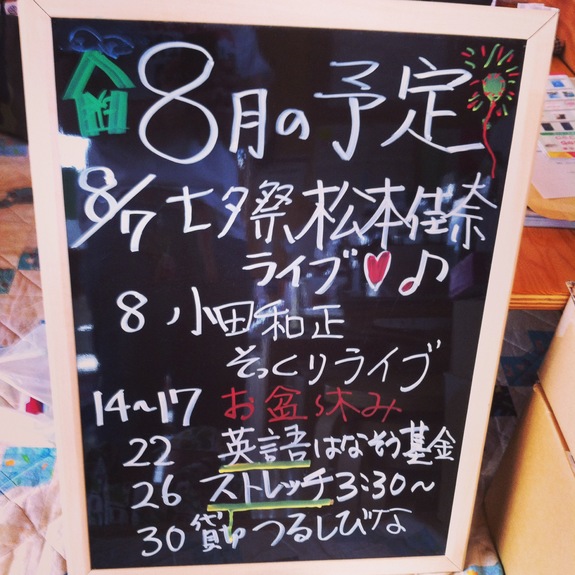 8月の予定
8/7 七夕祭 松本佳奈
ライブ♡♪
8 小田和正
そっくりライブ
14~17 お盆休み
22 英語はなそう基金
26 ストレッチ 3:30~
30 つるしびな